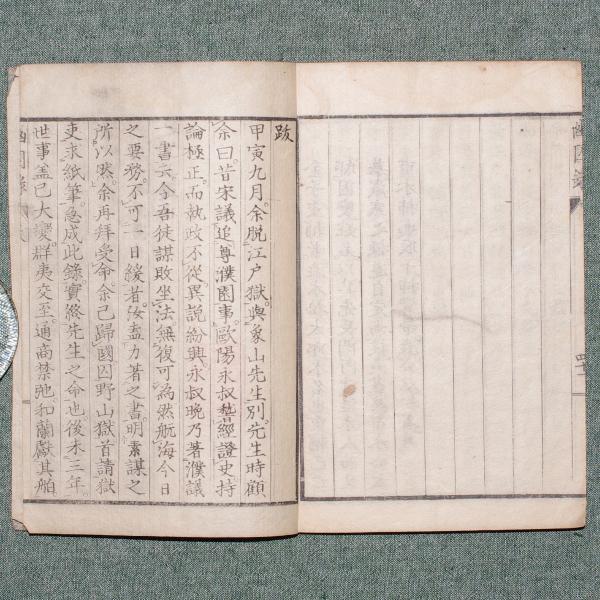 跋
甲寅九月余脱江户獄與象山先生別先生時顧
余曰昔宋議追尊濮園事歐陽永叔督經證史持
論極正而執政不從異説紛興永叔晩乃著濮議
一書云今吾徒謀敗坐法無復可為然航海今日
之要務不可一日緩者汝盍力著之書明素謀之
所以然余再拜受命余已歸國囚野山獄首請獄
吏求紙筆急成此錄實滌先生之命也後未三年
世事盖已大變群夷交至通商禁弛和蘭獻其舶
幽囚錄
幽囚錄